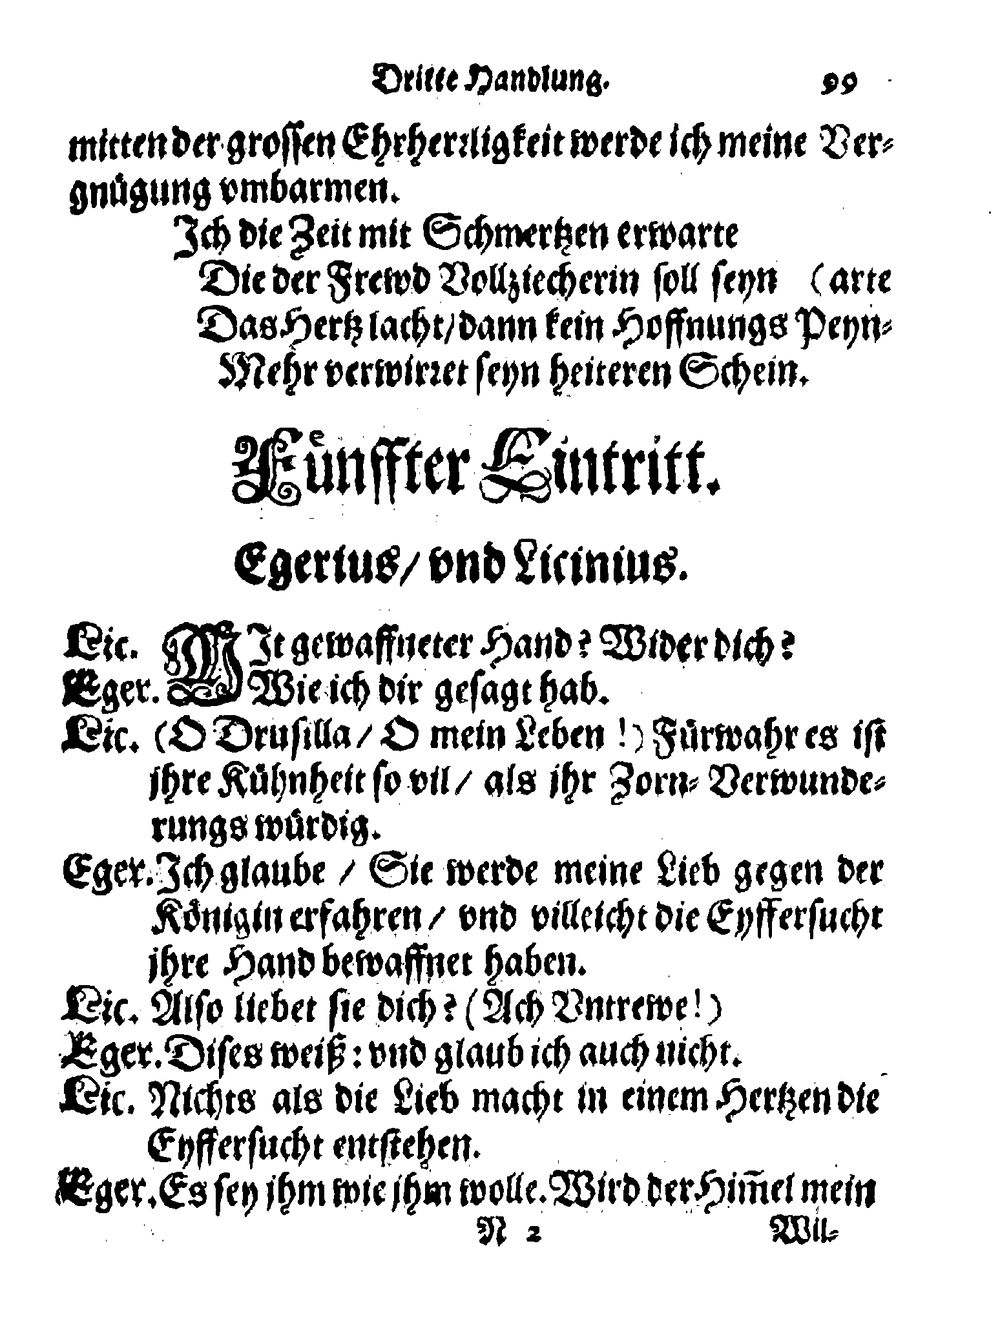 Dritte Handlung. 99
mitten der grossen Ehrherꝛligkeit werde ich meine Ver-
gnügung vmbarmen.
Ich die Zeit mit Schmertzen erwarte
Die der Frewd Vollziecherin soll seyn (arte
Das Hertz lacht/dann kein Hoffnungs Peyn-
Mehr verwirꝛet seyn heiteren Schein.
Fünffter Eintritt.
Egerius/ vnd Licinius.
Lic. MIt gewaffneter Hand? Wider dich?
Eger. Wie ich dir gesagt hab.
Lic. (O Drusilla/ O mein Leben !) Fürwahr es ist
jhre Kühnheit so vil/ als jhr Zorn- Verwunde-
rungs würdig.
Eger. Ich glaube / Sie werde meine Lieb gegen der
Königin erfahren/ vnd villeicht die Eyffersucht
jhre Hand bewaffnet haben.
Lic. Also liebet sie dich? (Ach Vntrewe!)
Eger. Dises weiß: vnd glaub ich auch nicht.
Lic. Nichts als die Lieb macht in einem Hertzen die
Eyffersucht entstehen.
Eger. Es sey jhm wie jhm wolle. Wird der Him̃el mein
N 2 Wil-